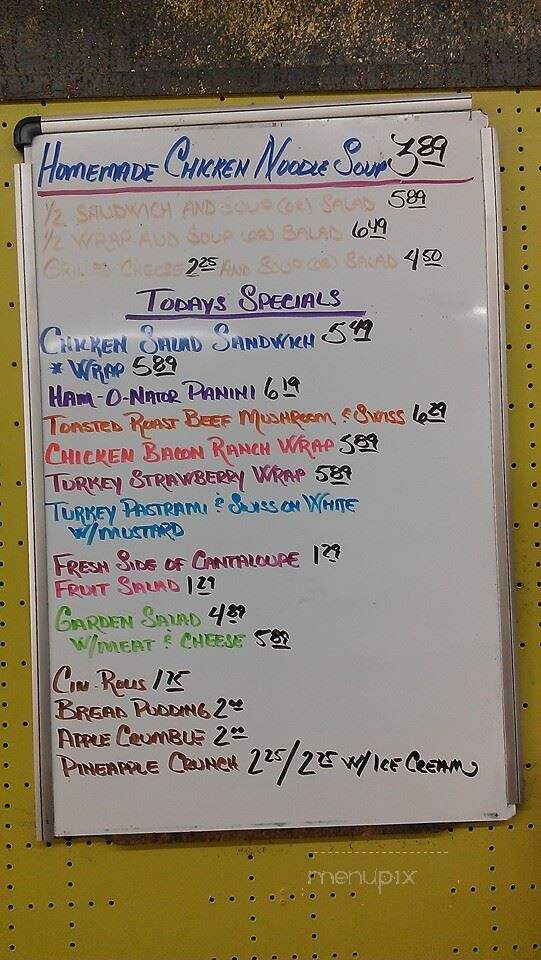 HOMEMADE CHICKEN NOODLE SOUP 3 89
1/2 SANDWICH AND SOUP (OR) SALAD 5 89
1/2 WRAP AND SOUP (OR) SALAD 6 49
GRILLED CHEESE 2 25 AND SOUP (OR) SALAD 4 50
TODAYS SPECIALS
CHICKEN SALAD SANDWICH 5 49
* WRAP 5 89
HAM-O-NATOR PANINI 6 19
TOASTED ROAST BEEF MUSHROOM & SWISS 6 29
CHICKEN BACON RANCH WRAP 5 89
TURKEY STRAWBERRY WRAP 5 89
TURKEY PASTRAMI & SWISS ON WHITE
W/MUSTARD
FRESH SIDE OF CANTALOUPE 1 29
FRUIT SALAD 1 29
GARDEN SALAD 4 89
W/MEAT & CHEESE 5 89
CIN-ROLLS 1 75
BREAD PUDDING 2 00
APPLE CRUMBLE 2 00
PINEAPPLE CRUNCH 2 25/2 75 W/ICE CREAM
menupix